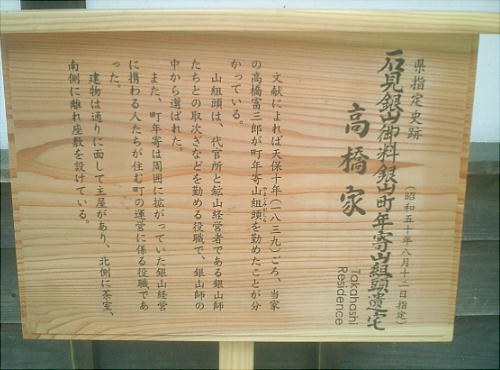 県指定史跡
石見銀山御料銀山町年寄山組頭遺宅
(昭和五十年八月十二日指定)
高橋家
Takahashi
Residence
文献によれば天保十年(一八三九)ごろ、当家
の高橋富三郎が町年寄山組頭を勤めたことが分
かっている。
山組頭は、代官所と鉱山経営者である銀山師
たちとの取次ぎなどを勤める役職で、銀山師の
中から選ばれた。
また、町年寄は周囲に拡がっていた銀山経営
に携わる人たちが住む町の運営に係る役職であ
った。
建物は通りに面して主屋があり、北側に茶室、
南側に離れ座敷を設けている。